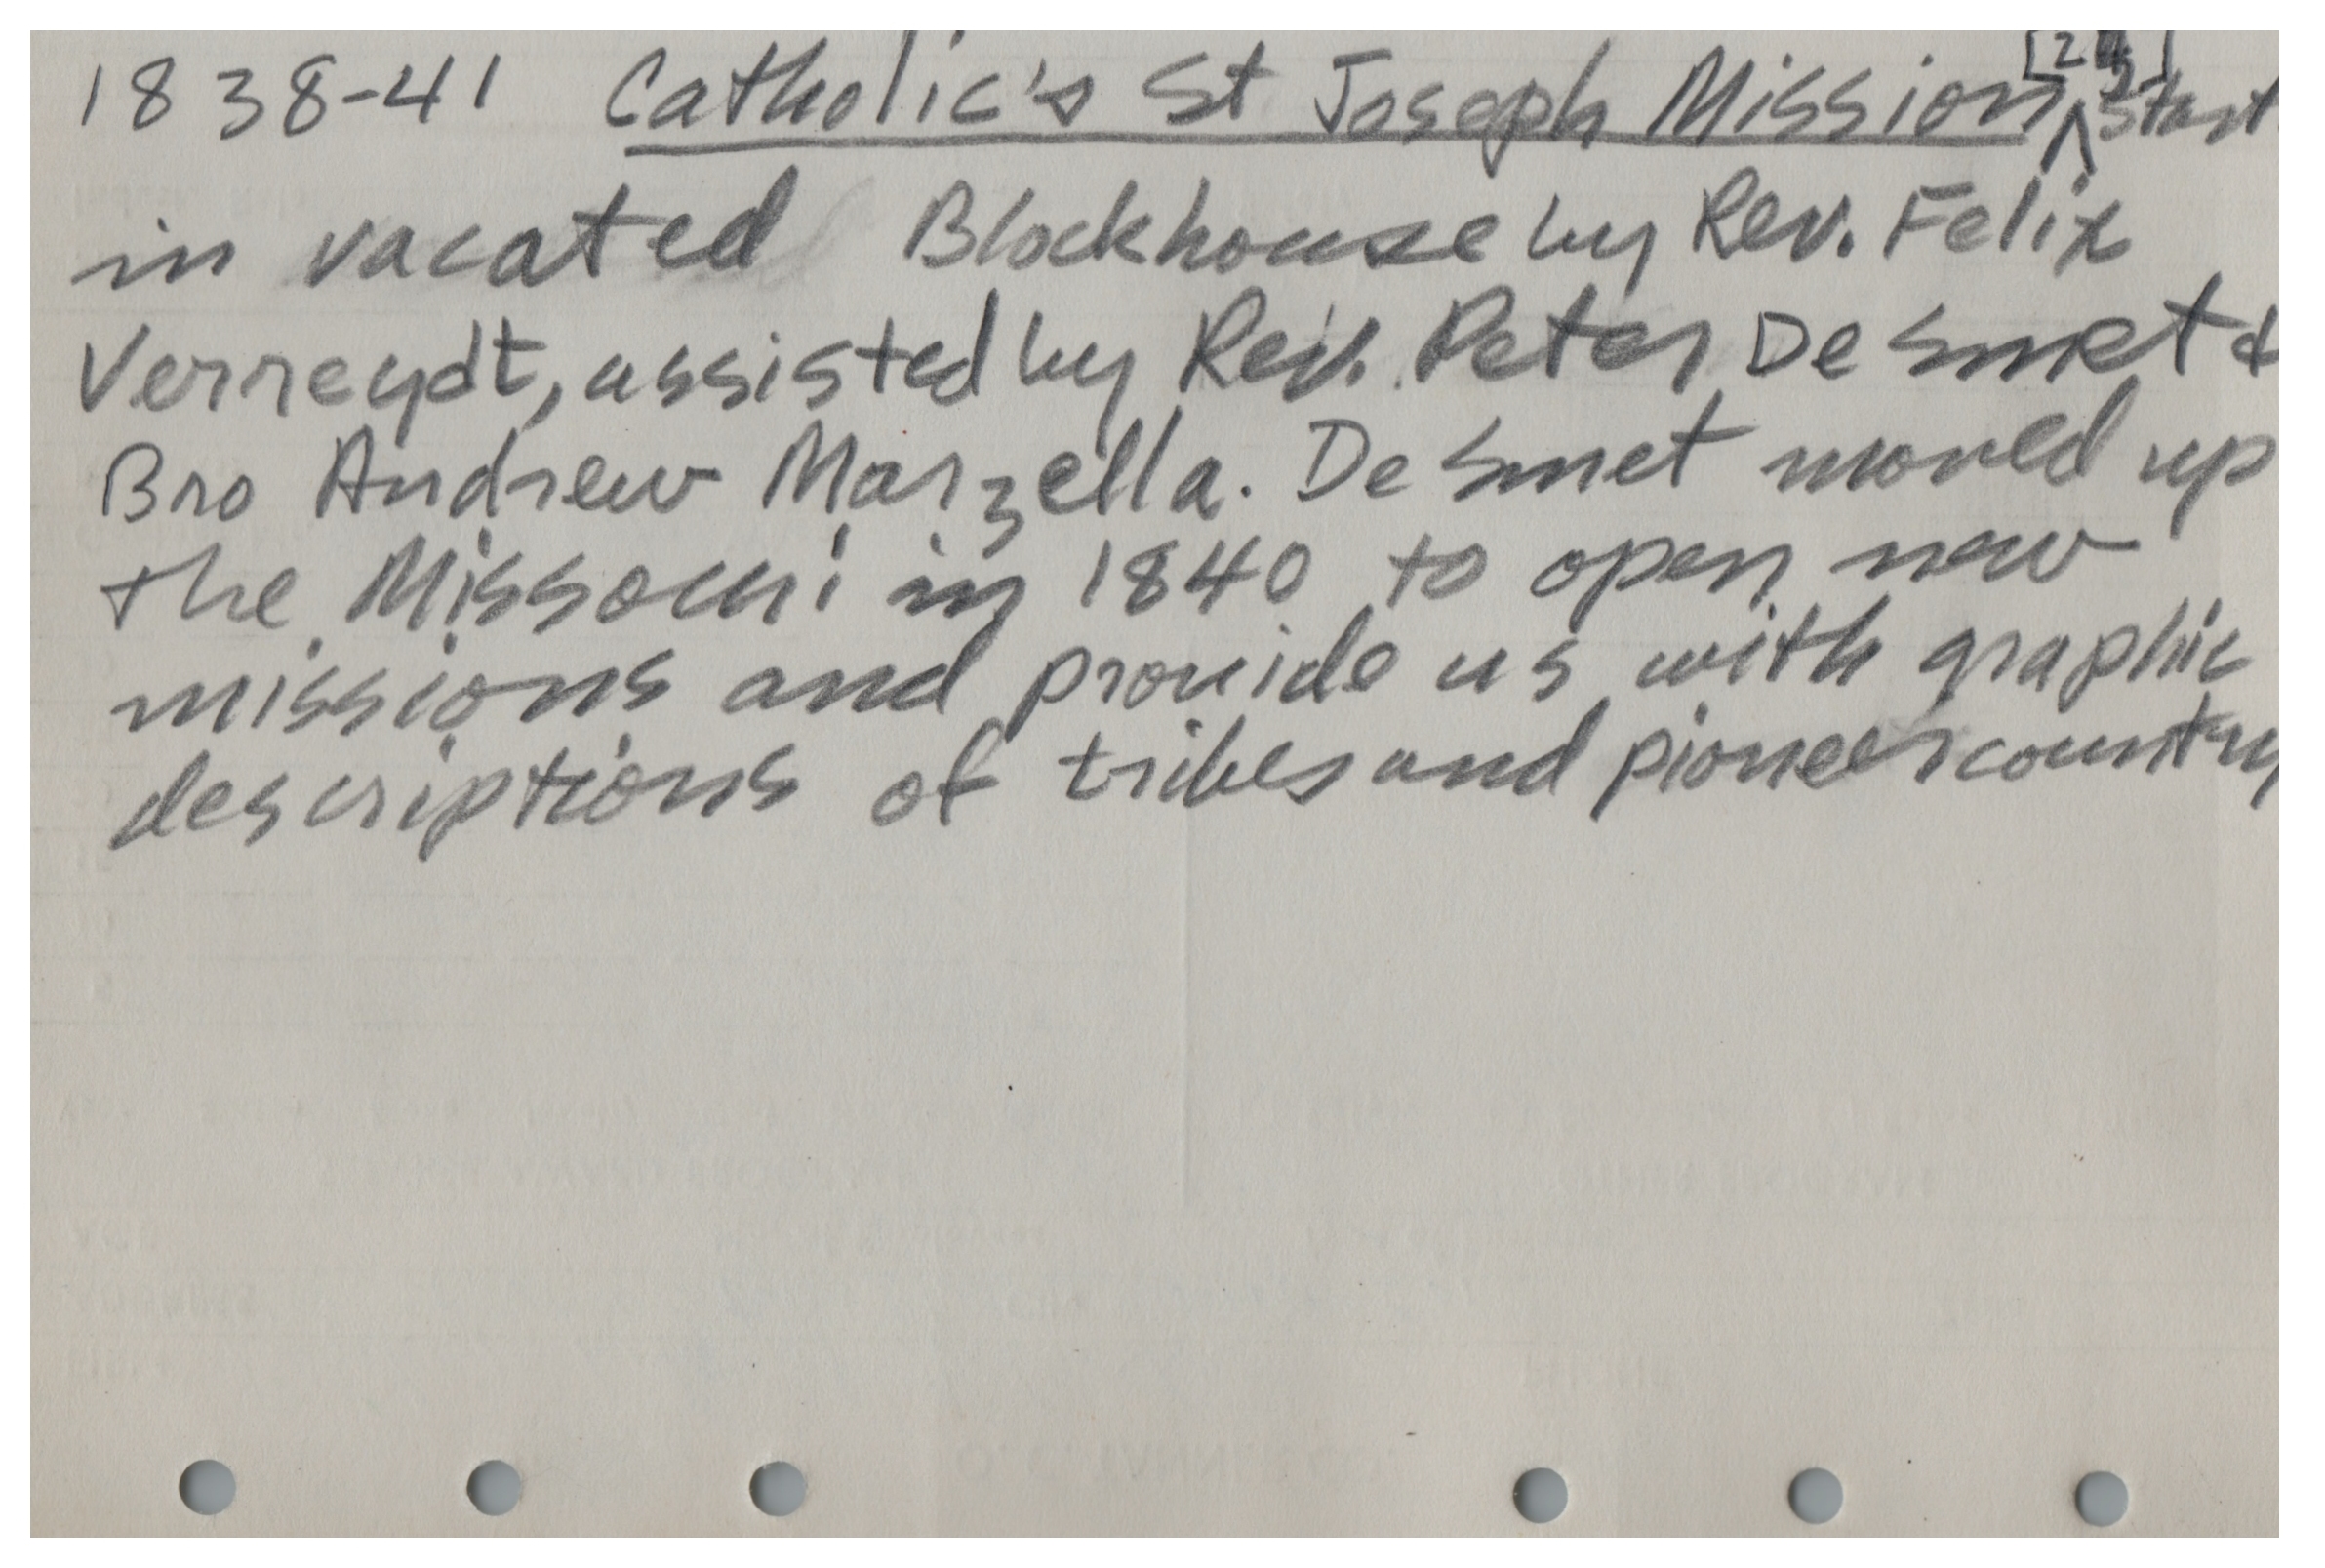 1838-41 Catholic's St Joseph Mission Start
in vacated Blockhouse by Rev. Felix
Verreydt, assisted by Rev. Peter De Smet &
Bro Andrew Marzella. De Smet moved up
the Missouri in 1840 to open new
missions and provide us with graphic
descriptions of tribes and pioneer country